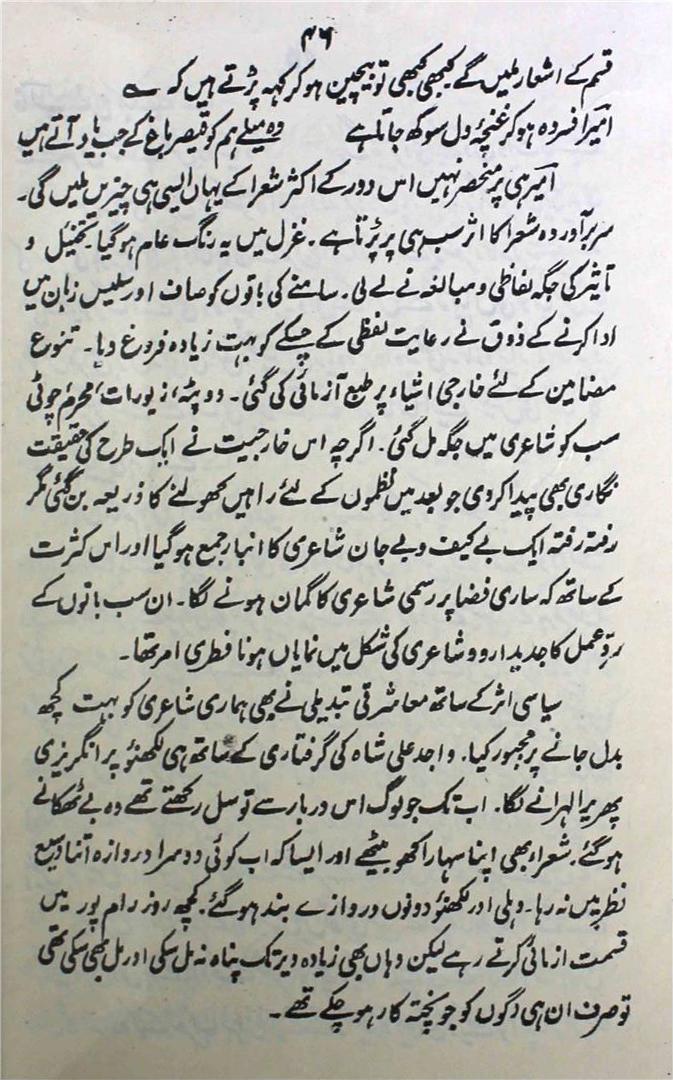 ۴۶
قسم کے اشعار ملیں گے کبھی کبھی تو بیچین ہو کر کہہ پڑتے ہیں کہ ؎
امیر افسردہ ہو کر غنچۂ دل سوکھ جاتا ہے وہ میلے ہم کو قیصر باغ کے جب یاد آتے ہیں
امیر ہی پر منحصر نہیں اس دور کے اکثر شعرا کے یہاں ایسی ہی چیزیں ملیں گی۔
سربرآوردہ شعرا کا اثر سب ہی پر پڑتا ہے۔ غزل میں یہ رنگ عام ہو گیا تخئیل و
تاثیر کی جگہ لفاظی و مبالغہ نے لے لی۔ سامنے کی باتوں کو صاف اور سلیس زبان میں
ادا کرنے کے ذوق نے رعایت لفظی کے چسکے کو بہت زیادہ فروغ دیا۔ تنوع
مضامین کے لئے خارجی اشیاء پر طبع آزمائی کی گئی۔ دوپٹہ، زیورات، محرم، چوٹی
سب کو شاعری میں جگہ مل گئی۔ اگرچہ اس خارجیت نے ایک طرح کی حقیقت
نگاری بھی پیدا کر دی جو بعد میں نظموں کے لئے راہیں کھولنے کا ذریعہ بن گئی مگر
رفتہ رفتہ ایک بے کیف و بے جان شاعری کا انبار جمع ہو گیا اور اس کثرت
کے ساتھ کہ ساری فضا پر رسمی شاعری کا گمان ہونے لگا۔ ان سب باتوں کے
ردِّ عمل کا جدید اردو شاعری کی شکل میں نمایاں ہونا فطری امر تھا۔
سیاسی اثر کے ساتھ معاشرتی تبدیلی نے بھی ہماری شاعری کو بہت کچھ
بدل جانے پر مجبور کیا۔ واجد علی شاہ کی گرفتاری کے ساتھ ہی لکھنؤ پر انگریزی
پھریرا لہرانے لگا۔ اب تک جو لوگ اس دربار سے توسل رکھتے تھے وہ بے ٹھکانے
ہو گئے۔ شعراء بھی اپنا سہارا کھو بیٹھے اور ایسا کہ اب کوئی دوسرا دروازہ اتنا وسیع
نظر میں نہ رہا۔ دہلی اور لکھنؤ دونوں دروازے بند ہو گئے۔ کچھ روز رام پور میں
قسمت ازمائی کرتے رہے لیکن وہاں بھی زیادہ دیر تک پناہ نہ مل سکی اور مل بھی سکی تھی
تو صرف ان ہی لوگوں کو جو پختہ کار ہو چکے تھے۔